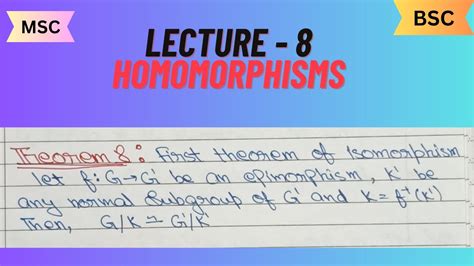 MSC
BSC
LECTURE - 8
HOMOMORPHISMS
Theorem 8: First theorem of Isomorphism
let f: G→G' be an epimorphism, K' be
any normal Subgroup of G' and K = f⁻¹(K')
Then, G/K ≃ G'/K